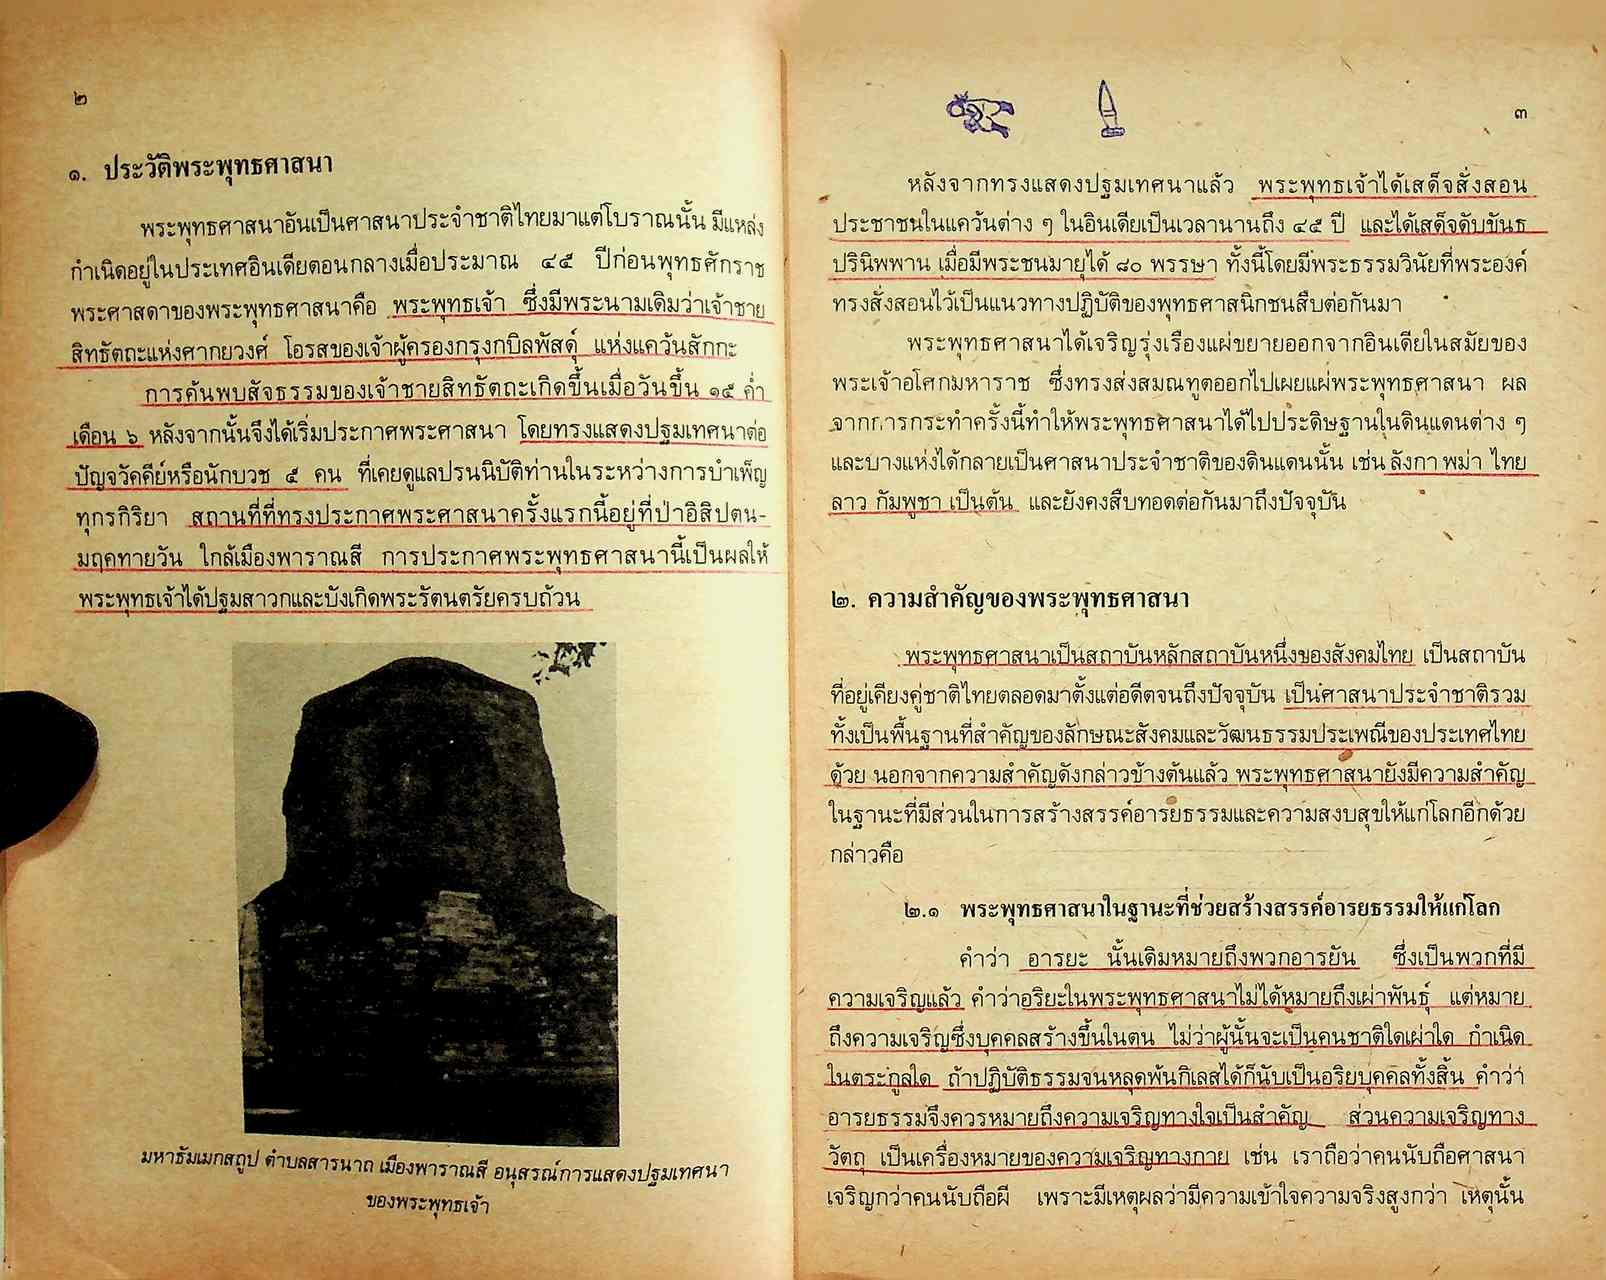 ๒
๑. ประวัติพระพุทธศาสนา
พระพุทธศาสนาอันเป็นศาสนาประจำชาติไทยมาแต่โบราณนั้น มีแหล่ง
กำเนิดอยู่ในประเทศอินเดียตอนกลางเมื่อประมาณ ๔๕ ปีก่อนพุทธศักราช
พระศาสดาของพระพุทธศาสนาคือ พระพุทธเจ้า ซึ่งมีพระนามเดิมว่าเจ้าชาย
สิทธัตถะแห่งศากยวงศ์ โอรสของเจ้าผู้ครองกรุงกบิลพัสดุ์ แห่งแคว้นสักกะ
การค้นพบสัจธรรมของเจ้าชายสิทธัตถะเกิดขึ้นเมื่อวันขึ้น ๑๕ ค่ำ
เดือน ๖ หลังจากนั้นจึงได้เริ่มประกาศพระศาสนา โดยทรงแสดงปฐมเทศนาต่อ
ปัญจวัคคีย์หรือนักบวช ๕ คน ที่เคยดูแลปรนนิบัติท่านในระหว่างการบำเพ็ญ
ทุกรกิริยา สถานที่ที่ทรงประกาศพระศาสนาครั้งแรกนี้อยู่ที่ป่าอิสิปตน-
มฤคทายวัน ใกล้เมืองพาราณสี การประกาศพระพุทธศาสนานี้เป็นผลให้
พระพุทธเจ้าได้ปฐมสาวกและบังเกิดพระรัตนตรัยครบถ้วน
มหาธัมเมกสถูป ตำบลสารนาถ เมืองพาราณสี อนุสรณ์การแสดงปฐมเทศนา
ของพระพุทธเจ้า
๓
หลังจากทรงแสดงปฐมเทศนาแล้ว พระพุทธเจ้าได้เสด็จสั่งสอน
ประชาชนในแคว้นต่าง ๆ ในอินเดียเป็นเวลานานถึง ๔๕ ปี และได้เสด็จดับขันธ
ปรินิพพาน เมื่อมีพระชนมายุได้ ๘๐ พรรษา ทั้งนี้โดยมีพระธรรมวินัยที่พระองค์
ทรงสั่งสอนไว้เป็นแนวทางปฏิบัติของพุทธศาสนิกชนสืบต่อกันมา
พระพุทธศาสนาได้เจริญรุ่งเรืองแผ่ขยายออกจากอินเดียในสมัยของ
พระเจ้าอโศกมหาราช ซึ่งทรงส่งสมณทูตออกไปเผยแผ่พระพุทธศาสนา ผล
จากการกระทำครั้งนี้ทำให้พระพุทธศาสนาได้ไปประดิษฐานในดินแดนต่าง ๆ
และบางแห่งได้กลายเป็นศาสนาประจำชาติของดินแดนนั้น เช่น ลังกา พม่า ไทย
ลาว กัมพูชา เป็นต้น และยังคงสืบทอดต่อกันมาถึงปัจจุบัน
๒. ความสำคัญของพระพุทธศาสนา
พระพุทธศาสนาเป็นสถาบันหลักสถาบันหนึ่งของสังคมไทย เป็นสถาบัน
ที่อยู่เคียงคู่ชาติไทยตลอดมาตั้งแต่อดีตจนถึงปัจจุบัน เป็นศาสนาประจำชาติรวม
ทั้งเป็นพื้นฐานที่สำคัญของลักษณะสังคมและวัฒนธรรมประเพณีของประเทศไทย
ด้วย นอกจากความสำคัญดังกล่าวข้างต้นแล้ว พระพุทธศาสนายังมีความสำคัญ
ในฐานะที่มีส่วนในการสร้างสรรค์อารยธรรมและความสงบสุขให้แก่โลกอีกด้วย
กล่าวคือ
๒.๑ พระพุทธศาสนาในฐานะที่ช่วยสร้างสรรค์อารยธรรมให้แก่โลก
คำว่า อารยะ นั้นเดิมหมายถึงพวกอารยัน ซึ่งเป็นพวกที่มี
ความเจริญแล้ว คำว่าอริยะในพระพุทธศาสนาไม่ได้หมายถึงเผ่าพันธุ์ แต่หมาย
ถึงความเจริญซึ่งบุคคลสร้างขึ้นในตน ไม่ว่าผู้นั้นจะเป็นคนชาติใดเผ่าใด กำเนิด
ในตระกูลใด ถ้าปฏิบัติธรรมจนหลุดพ้นกิเลสได้ก็นับเป็นอริยบุคคลทั้งสิ้น คำว่า
อารยธรรมจึงควรหมายถึงความเจริญทางใจเป็นสำคัญ ส่วนความเจริญทาง
วัตถุ เป็นเครื่องหมายของความเจริญทางกาย เช่น เราถือว่าคนนับถือศาสนา
เจริญกว่าคนนับถือผี เพราะมีเหตุผลว่ามีความเข้าใจความจริงสูงกว่า เหตุนั้น